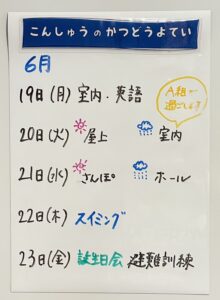 こんしゅうのかつどうよてい
6月
19日(月) 室内・英語
A組で
過ごします
20日(火) 屋上 室内
21日(水) さんぽ ホール
22日(木) スイミング
23日(金) 誕生日会 避難訓練